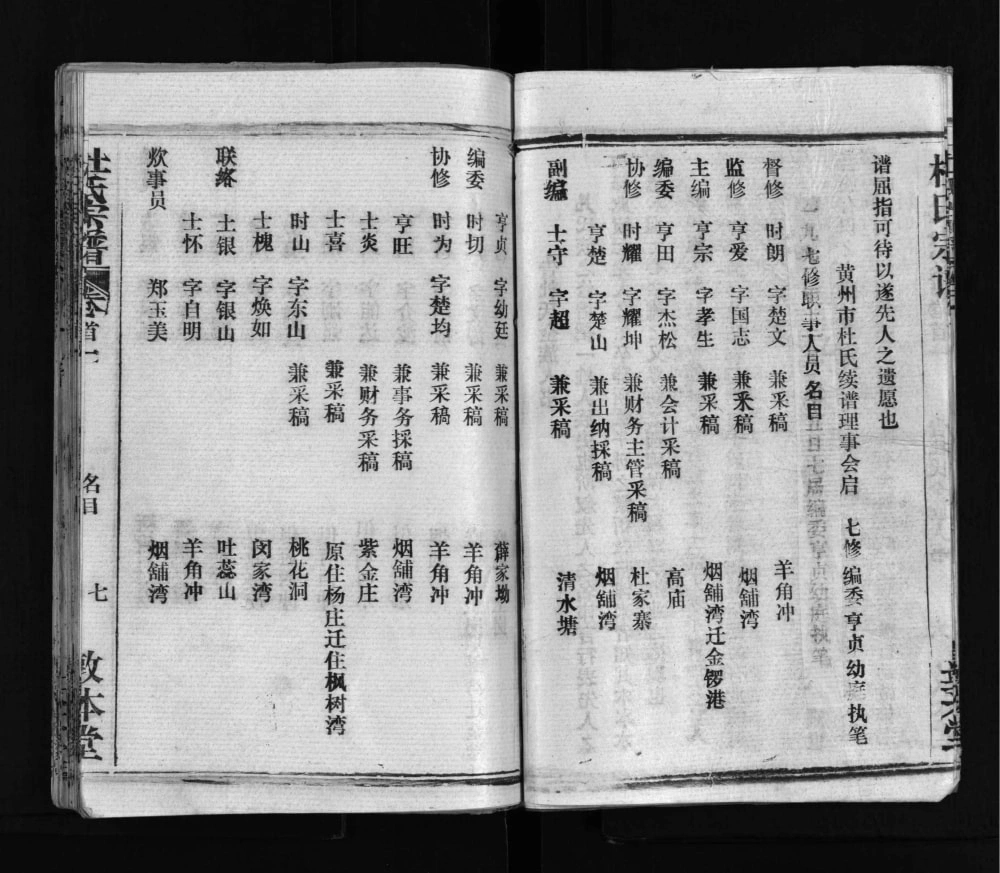 谱屈指可待以遂先人之遗愿也
黄州市杜氏续谱理事会启 七修编委亨贞幼庭执笔
七修职事人员名目
督修 时朗 字楚文 兼采稿 羊角冲
监修 亨爱 字国志 兼采稿 烟舖湾
主编 亨宗 字孝生 兼采稿 烟舖湾迁金锣港
编委 亨田 字杰松 兼会计采稿 高庙
协修 时耀 字耀坤 兼财务主管采稿 杜家寨
亨楚 字楚山 兼出纳採稿 烟舖湾
副编 士守 字超 兼采稿 清水塘
亨贞 字幼廷 兼采稿 薛家坳
编委 时切 字 兼采稿 羊角冲
协修 时为 字楚均 兼采稿 羊角冲
亨旺 兼事务採稿 烟舖湾
士炎 兼财务采稿 紫金庄
士喜 兼采稿 原住杨庄迁住枫树湾
时山 字东山 兼采稿 桃花洞
士槐 字焕如 闵家湾
联络 士银 字银山 吐蕊山
士怀 字自明 羊角冲
炊事员 郑玉美 烟舖湾
杜氏宗谱 卷首一 名目 七 敦本堂